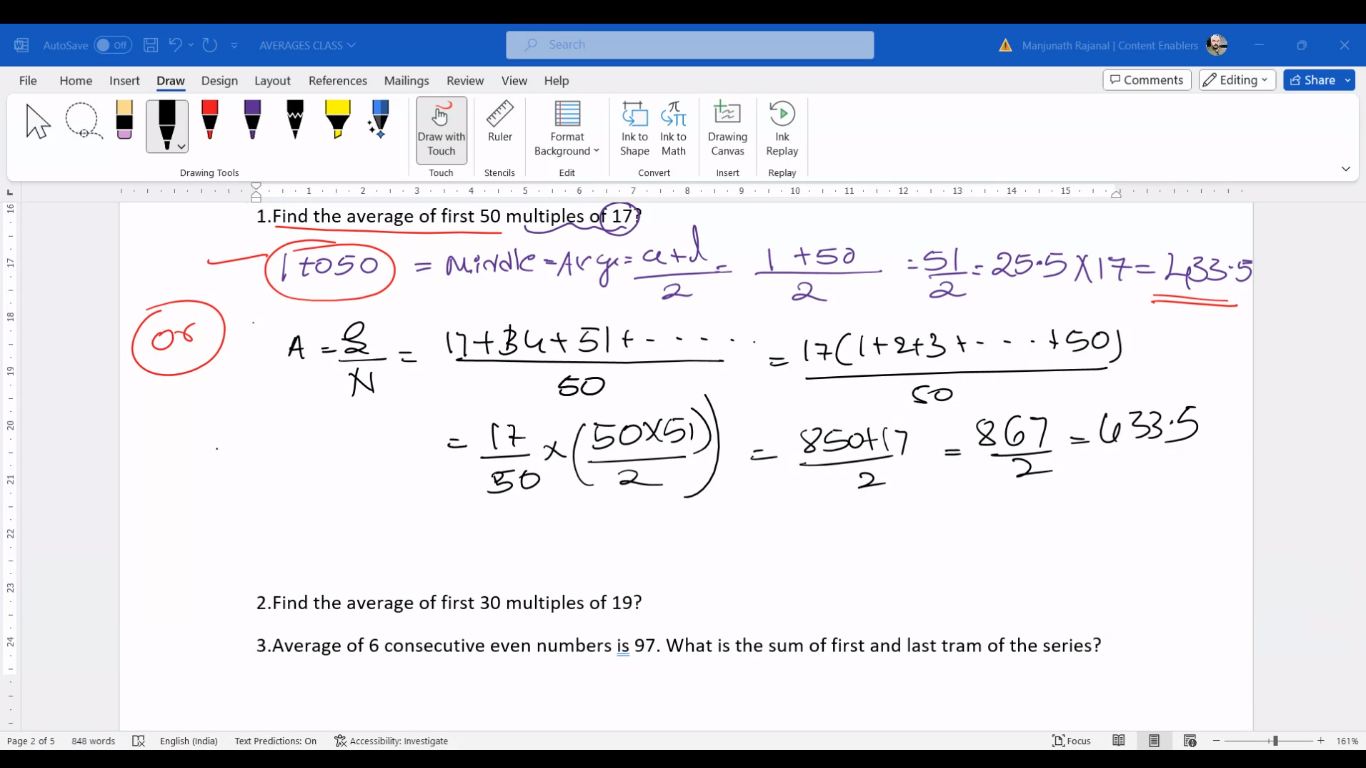 AutoSave Off AVERAGES CLASS Search Manjunath Rajanal | Content Enablers
File Home Insert Draw Design Layout References Mailings Review View Help Comments Editing Share
Draw with Touch Ruler Format Background Ink to Shape Ink to Math Drawing Canvas Ink Replay
Drawing Tools Touch Stencils Edit Convert Insert Replay
1 2 3 4 5 6 7 8 9 10 11 12 13 14 15
16
1.Find the average of first 50 multiples of 17?
17
1 to 50 = Middle = Avg = a+l/2 = 1+50/2 = 51/2 = 25.5 X 17 = 433.5
18
or
A = S/N = 17+34+51+...... / 50 = 17(1+2+3+....+50) / 50
20
= 17/50 x (50x51/2) = 850+17/2 = 867/2 = 433.5
21
22
23
2.Find the average of first 30 multiples of 19?
24
3.Average of 6 consecutive even numbers is 97. What is the sum of first and last tram of the series?
Page 2 of 5 848 words English (India) Text Predictions: On Accessibility: Investigate Focus 161%